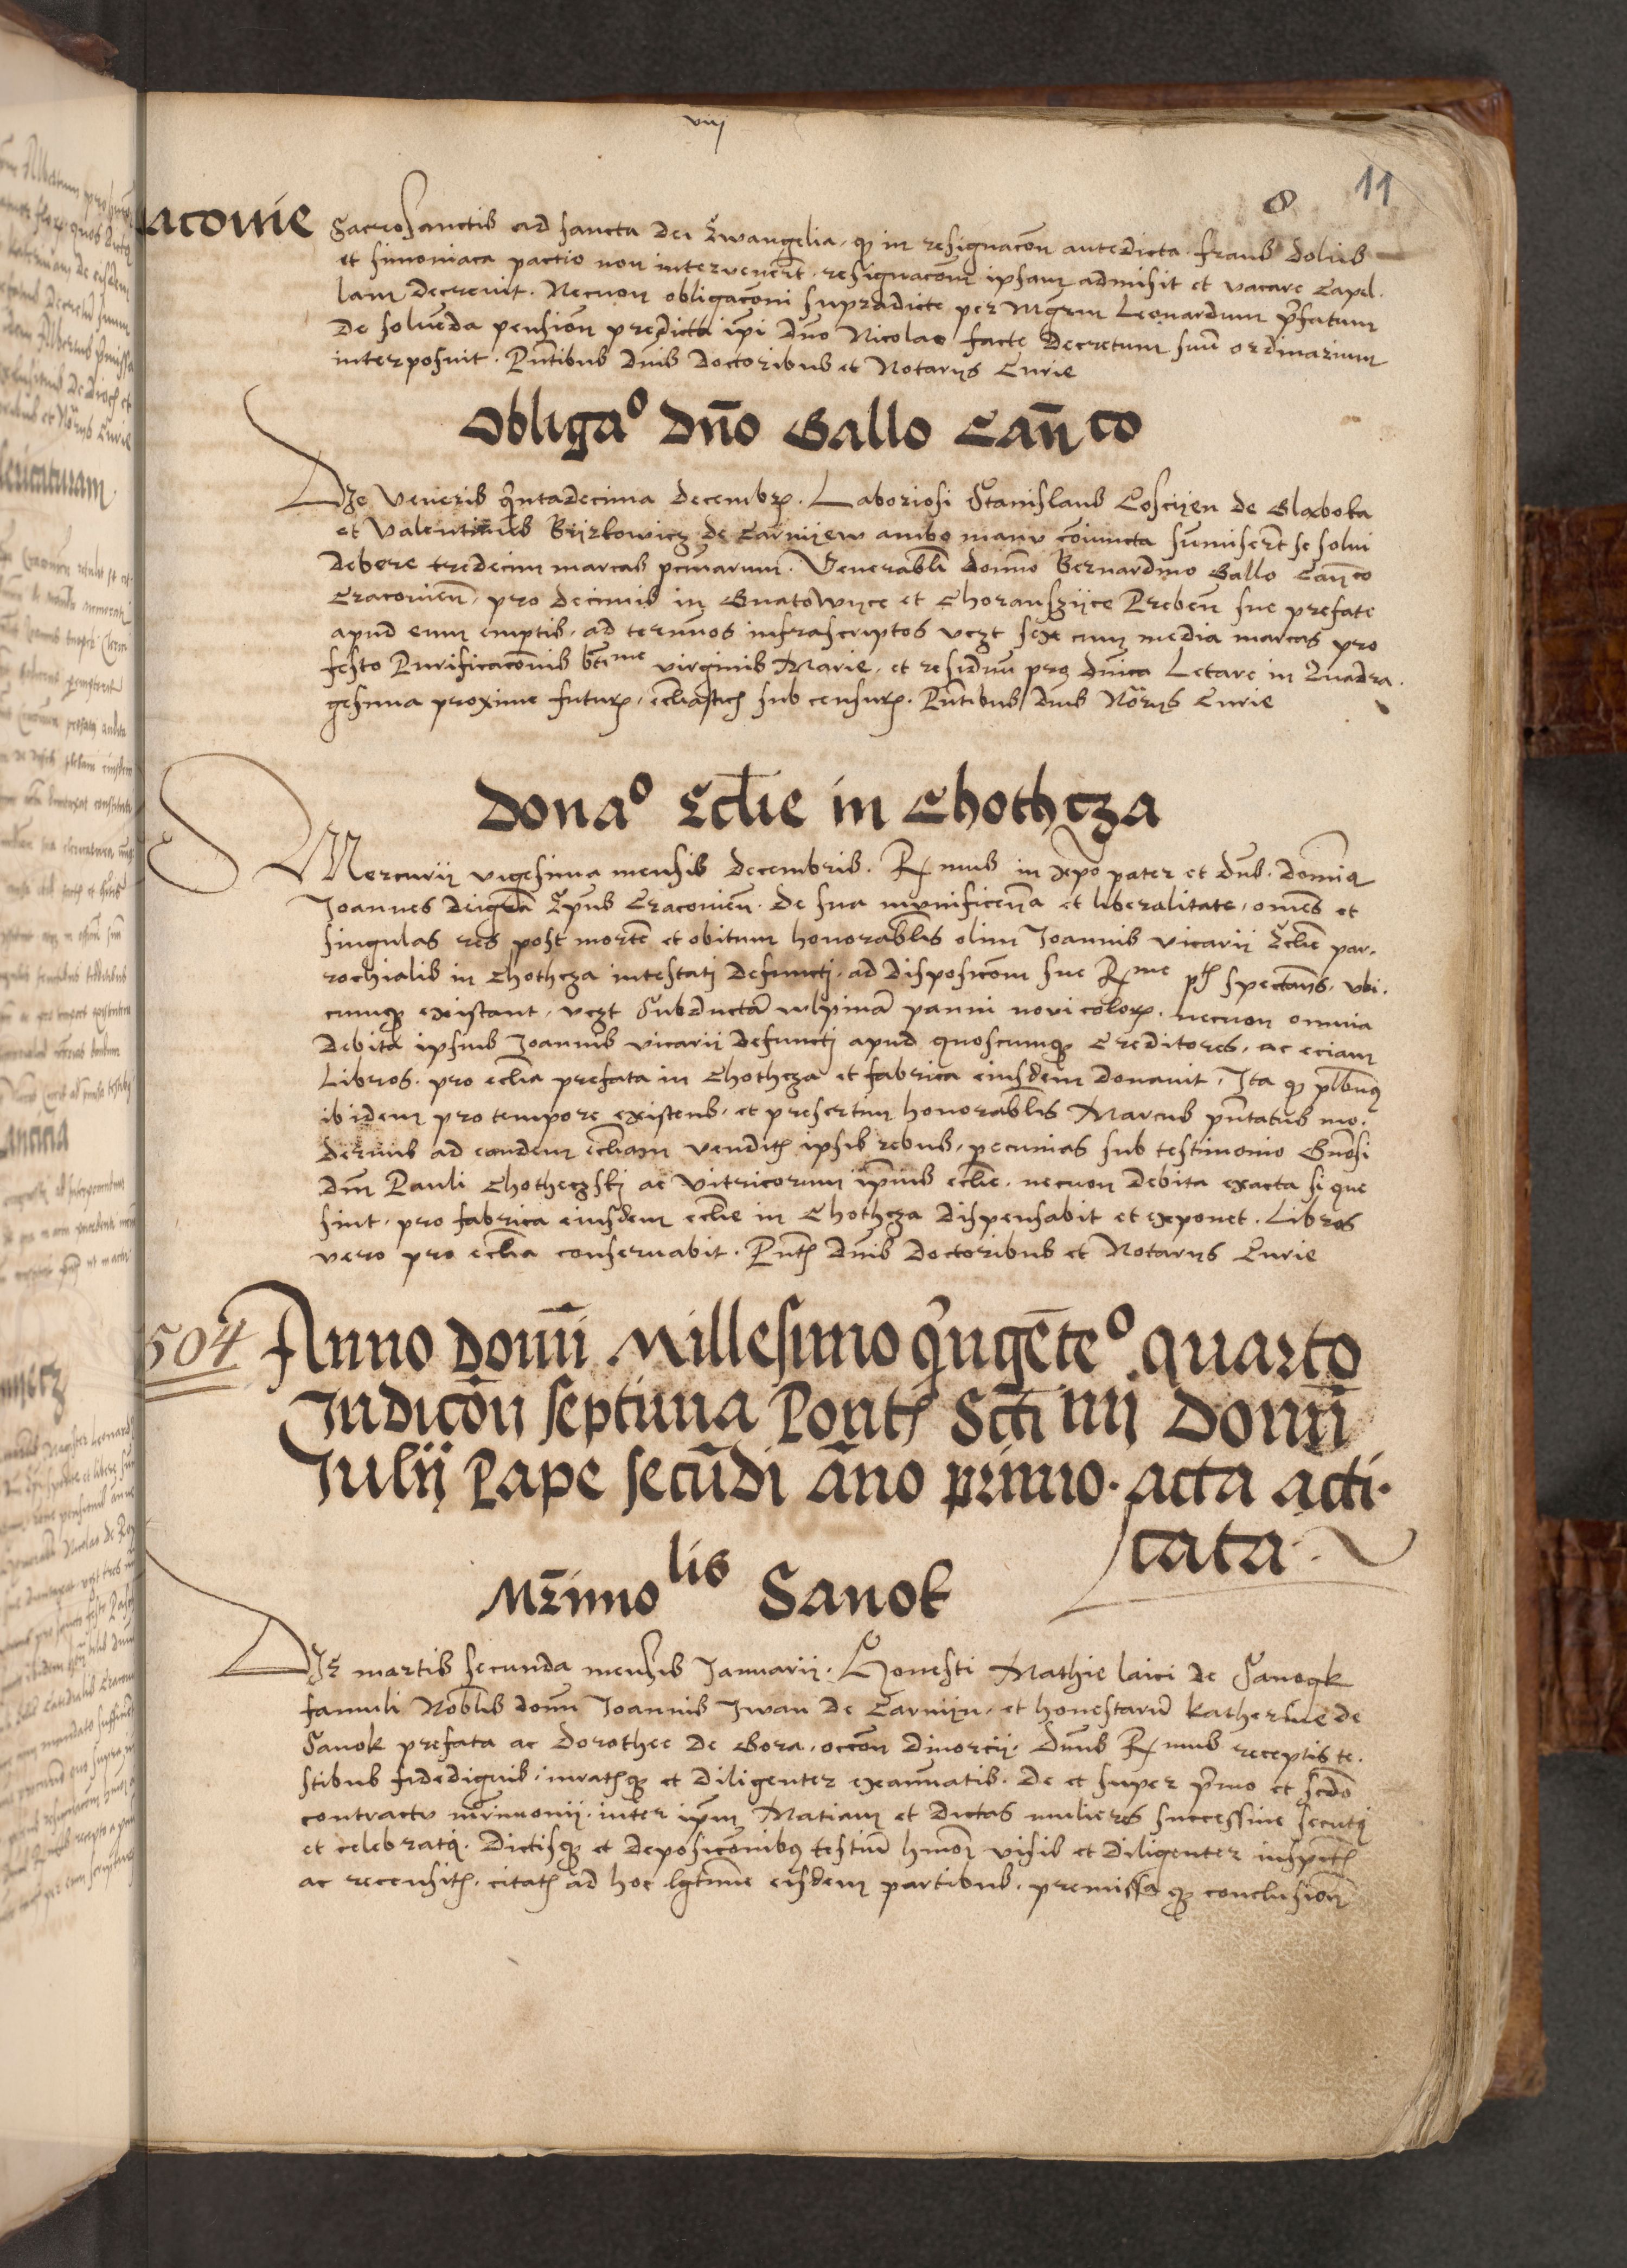 viij
8 11
acovie
Sacrosanctis ad sancta dei Ewangelia, q in resignacōn antedicta fraus dolus
et simoniaca pactio non intervenert. resignacōnem ipsam admisit et vacare Capel.
lam decrevit. Necnon obligacōni supradicte per Mgrm Leonardum p̄fatum
de solvēda pensiōn predicta ip̄i dno Nicolao facte decretum suū ordinarium
interposuit. Pn̄tibus dnis doctoribus et Notarijs Curie
Obliga⁰ dn̄o Gallo Can̄co
Die Veneris qͥntadecima decembr. Laboriosi Stanislaus Coscijen de Glaboka
et Valentinus Bijrkowicz de Carnijew ambo manu cōiuncta sūmisert se solui
debere tredecim marcas pccuniarum. Venerabli domno Bernardino Gallo Can̄co
Cracovien̄, pro decimis in Gnatowijce et Choranszijce Preben̄ sue prefate
apud eum emptis, ad terminos infrascriptos vczt sex cum media marcas pro
festo Purificacōnis bt̄iᵐᵉ virginis Marie, et residuū pro dn̄ica Letare in Quadra.
gesima proxime futur, ecliastic sub censur. Pn̄tibus dnis Nōrijs Curie
Dona⁰ Eclie in Chothcza
Mercurij vigesima mensis decembris. R mus in xp̄o pater et dn̄s. domnus
Joannes dei grā Ep̄us Cracovien̄. de sua munificencia et liberalitate, omēs et
singulas res post mortē et obitum honorablis olim Joannis vicarij Eclie par.
rochialis in Chothcza intestati defuncti, ad disposicōm sue R ᵐᵉ pt spectan̄s, vbi.
cumq existant, vczt Subductā wlpinā panni novi color. necnon omnia
debita ipsius Joannis vicarij defuncti apud quoscumq Creditores, ac eciam
Libros. pro eclia prefata in Chothcza et fabrica eiusdem donavit, Ita q plbnus
ibidem pro tempore existens, et presertim honorablis Marcus pn̄tatus mo.
dernus ad eandem ecliam vendit ipsis rebus, pecunias sub testimonio Gn̄osi
dn̄i Pauli Chotheczski ac Vitricorum ip̄ius eclie. necnon debita exacta si que
sint, pro fabrica eiusdem eclie in Chothcza dispensabit et exponet. Libros
vero pro eclia conservabit. Pn̄t dnis doctoribus et Notarijs Curie
504 Anno domī Millesimo qͥngēte⁰ quarto
Indicōn septima Pont Scti mi Domī
Iulij Pape secūdi āno primo. acta acti.
cata.
Mr̄imoˡⁱˢ Sanok
Die martis secunda mensis Januarij. Honesti Mathie laici de Sanogk
famuli Noblis domi Joannis Iwan de Carnijn, et honestarū Katherine de
Sanok prefata ac Dorothee de Gora, occōn divorcij. Dnus R mus receptis te.
stibus fidedignis, iuratisq et diligenter examinatis. de et super pͥmo et scdo
contractu mr̄imonij, inter ip̄m Matiam et dictas mulieres successive secuti
et celebrati. dictisq et deposicōnibus testiū hmōi visis et diligenter inspect
ac recensit, citatis ad hoc lgtime eisdem partibus, premissaq conclusiōn